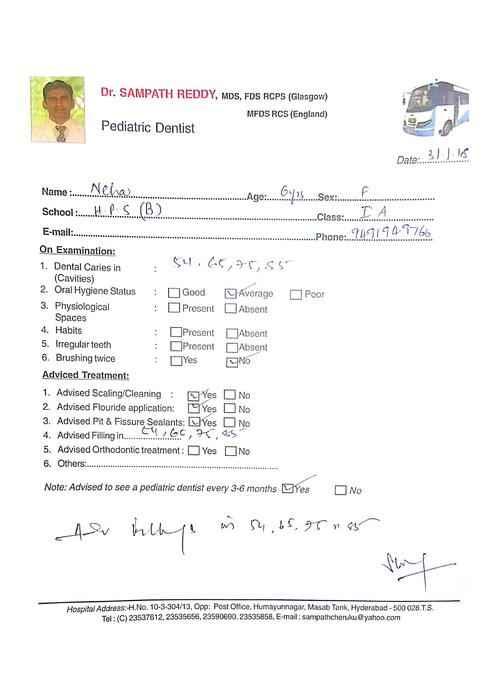 Dr. SAMPATH REDDY, MDS, FDS RCPS (Glasgow)
MFDS RCS (England)
Pediatric Dentist
Date: 3/1/18
Name: Neha Age: 6yrs Sex: F
School: H P S (B) Class: I A
E-mail: Phone: 9491949766
On Examination:
1. Dental Caries in (Cavities) : 54, 65, 75, 85
2. Oral Hygiene Status : Good Average Poor
3. Physiological Spaces : Present Absent
4. Habits Present Absent
5. Irregular teeth Present Absent
6. Brushing twice Yes No
Adviced Treatment:
1. Advised Scaling/Cleaning : Yes No
2. Advised Flouride application: Yes No
3. Advised Pit & Fissure Sealants: Yes No
4. Advised Filling in 54, 65, 75, 85
5. Advised Orthodontic treatment : Yes No
6. Others:
Note: Advised to see a pediatric dentist every 3-6 months Yes No
Adv fillings in 54, 65, 75 n 85
Hospital Address:-H.No. 10-3-304/13, Opp: Post Office, Humayunnagar, Masab Tank, Hyderabad - 500 028.T.S.
Tel : (C) 23537612, 23535656, 23590690. 23535858, E-mail : sampathcheruku@yahoo.com